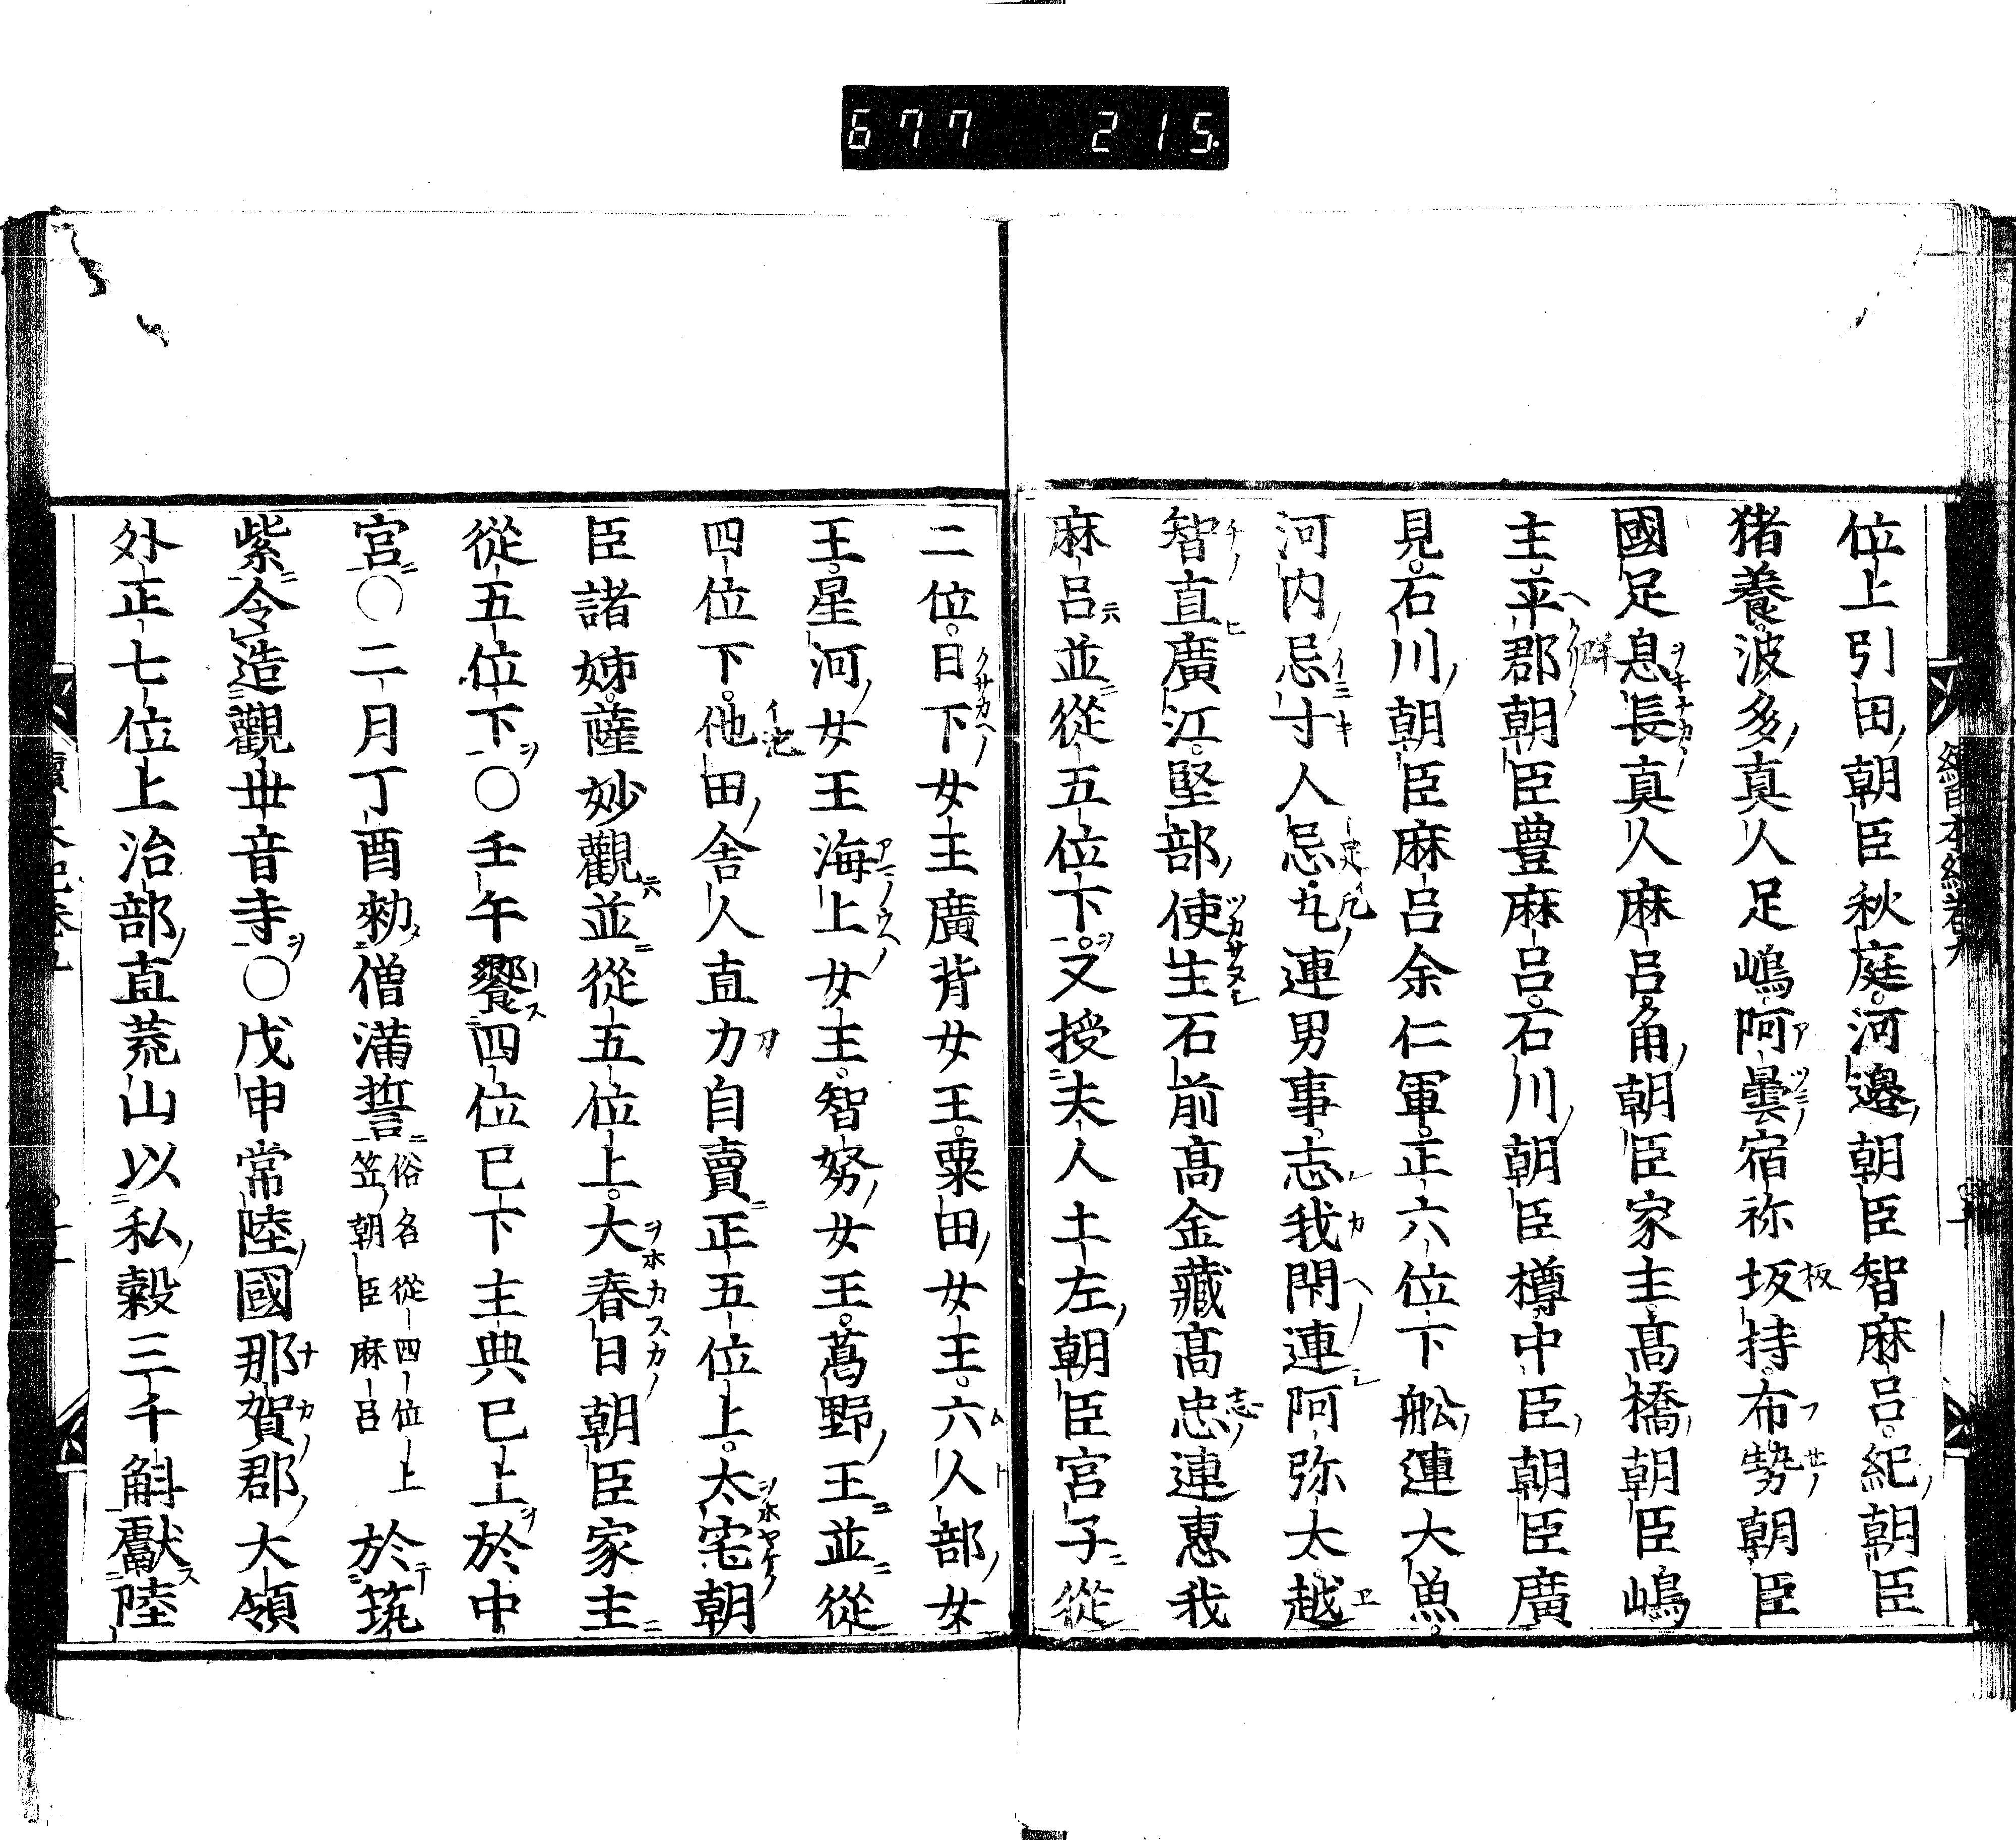 677 215
位上引田朝臣秋庭河邉朝臣智麻呂紀朝臣
猪養波多真人足嶋阿曇宿祢坂持布勢朝臣
國足息長真人麻呂角朝臣家主髙橋朝臣嶋
主平郡朝臣豊麻呂石川朝臣樽中臣朝臣廣
見石川朝臣麻呂余仁軍正六位下舩連大魚
河内忌寸人忌九連男事志我閇連阿弥太越
智直廣江堅部使生石前髙金藏髙忠連惠我
麻呂並從五位下又授夫人土左朝臣宮子從
二位日下女王廣背女王粟田女王六人部女
王星河女王海上女王智努女王葛野王並從
四位下他田舎人直力自賣正五位上太宅朝
臣諸姊薩妙觀並從五位上大春日朝臣家主
從五位下〇壬午饗四位已下主典已上於中
宮〇二月丁酉勅僧滿誓俗名從四位上笠朝臣麻呂於筑
紫令造觀丗音寺〇戊申常陸國那賀郡大領
外正七位上治部直荒山以私穀三千斛獻陸